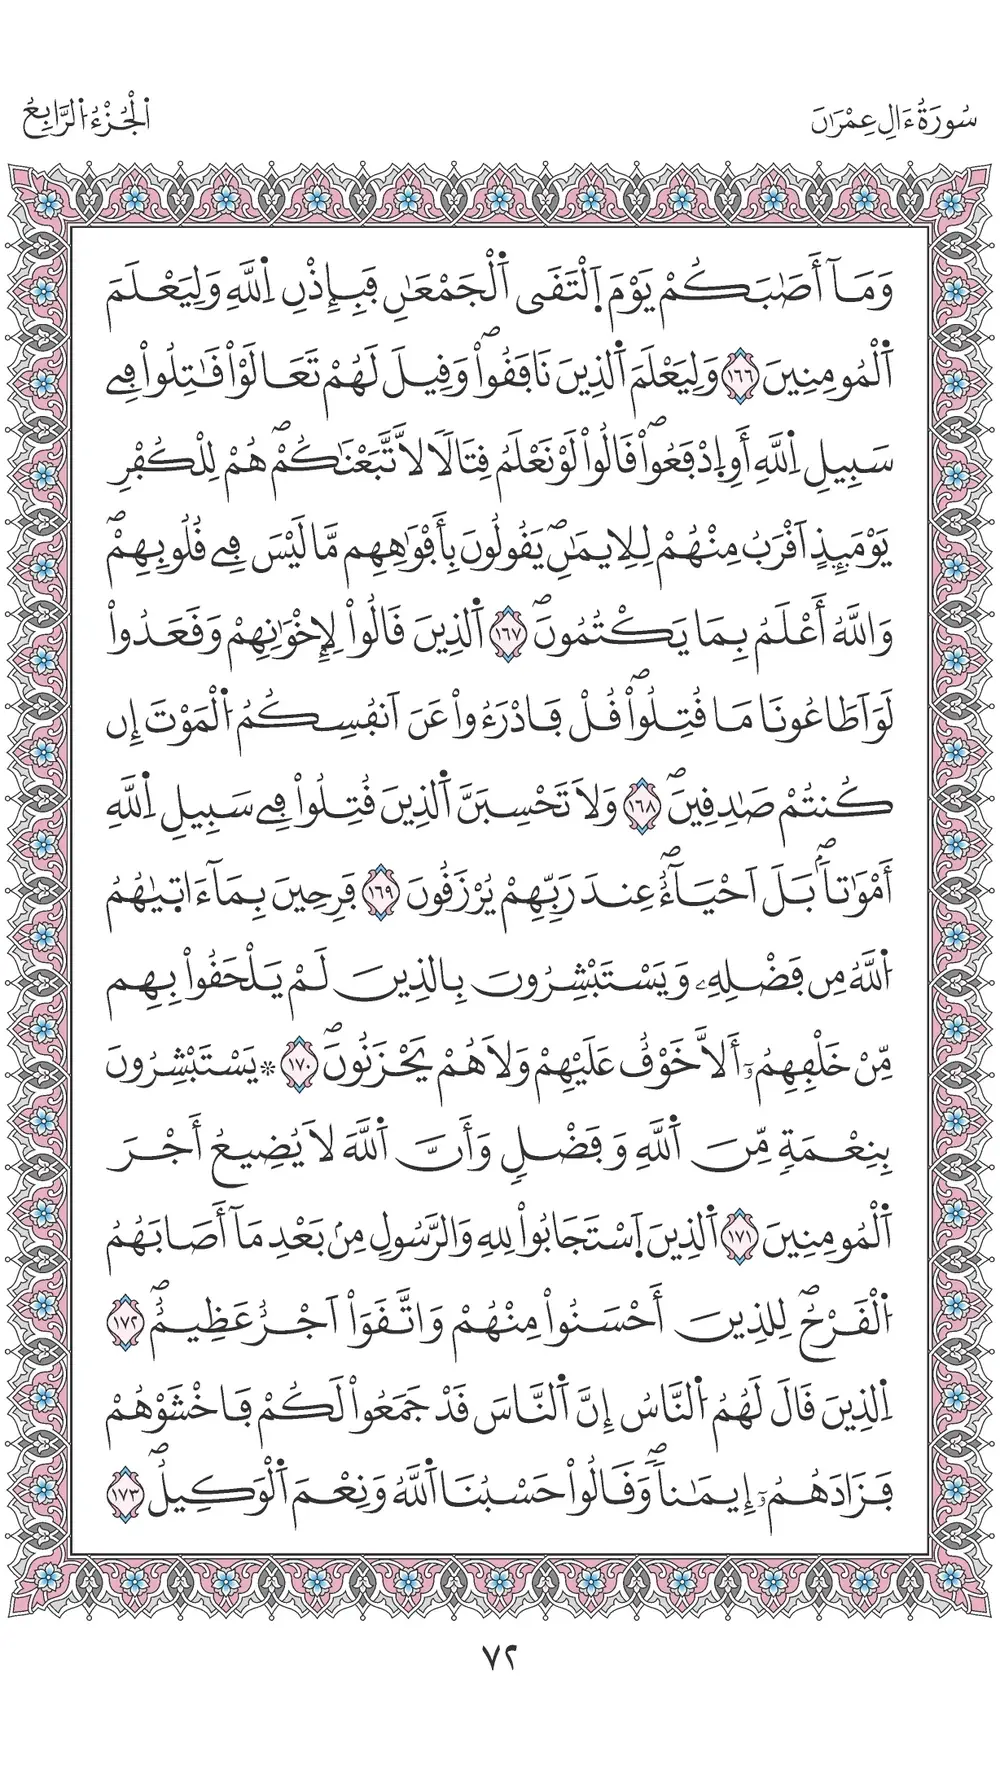 سُورَةُ ءَالِ عِمْرَٰنَ
اَ۬لْجُزْءُ اُ۬لرَّابِعُ
وَمَآ أَصَٰبَكُمْ يَوْمَ اَ۪لْتَقَى اَ۬لْجَمْعَٰنِ فَبِإِذْنِ اِ۬للَّهِ وَلِيَعْلَمَ
اَ۬لْمُومِنِينَ ١٦٦ وَلِيَعْلَمَ اَ۬لذِينَ نَافَقُواْۖ وَقِيلَ لَهُمْ تَعَالَوْاْ قَٰتِلُواْ فِے
سَبِيلِ اِ۬للَّهِ أَوِ اِ۪دْفَعُواْۖ قَالُواْ لَوْ نَعْلَمُ قِتَالاٗ لَّاتَّبَعْنَٰكُمْۖ هُمْ لِلْكُفْرِ
يَوْمَئِذٍ اَقْرَبُ مِنْهُمْ لِلِايمَٰنِۖ يَقُولُونَ بِأَفْوَٰهِهِم مَّا لَيْسَ فِے قُلُوبِهِمْۖ
وَاللَّهُ أَعْلَمُ بِمَا يَكْتُمُونَۖ ١٦٧ اَ۬لذِينَ قَالُواْ لِإِخْوَٰنِهِمْ وَقَعَدُواْ
لَوَ اَطَاعُونَا مَا قُتِلُواْۖ قُلْ فَادْرَءُواْ عَنَ اَنفُسِكُمُ اُ۬لْمَوْتَ إِن
كُنتُمْ صَٰدِقِينَۖ ١٦٨ وَلَا تَحْسِبَنَّ اَ۬لذِينَ قُتِلُواْ فِے سَبِيلِ اِ۬للَّهِ
أَمْوَٰتاَۢۖ بَلَ اَحْيَآءٌۖ عِندَ رَبِّهِمْ يُرْزَقُونَ ١٦٩ فَرِحِينَ بِمَآ ءَات۪يٰهُمُ
اُ۬للَّهُ مِن فَضْلِهِۦ وَيَسْتَبْشِرُونَ بِالذِينَ لَمْ يَلْحَقُواْ بِهِم
مِّنْ خَلْفِهِمُۥٓ أَلَّا خَوْفٌ عَلَيْهِمْ وَلَا هُمْ يَحْزَنُونَۖ ١٧٠ ۞يَسْتَبْشِرُونَ
بِنِعْمَةٖ مِّنَ اَ۬للَّهِ وَفَضْلٖ وَأَنَّ اَ۬للَّهَ لَا يُضِيعُ أَجْرَ
اَ۬لْمُومِنِينَ ١٧١ اَ۬لذِينَ اَ۪سْتَجَابُواْ لِلهِ وَالرَّسُولِ مِنۢ بَعْدِ مَآ أَصَابَهُمُ
اُ۬لْقَرْحُۖ لِلذِينَ أَحْسَنُواْ مِنْهُمْ وَاتَّقَوَاْ اَجْرٌ عَظِيمٌۖ ١٧٢
اِ۬لذِينَ قَالَ لَهُمُ اُ۬لنَّاسُ إِنَّ اَ۬لنَّاسَ قَدْ جَمَعُواْ لَكُمْ فَاخْشَوْهُمْ
فَزَادَهُمُۥٓ إِيمَٰناٗۖ وَقَالُواْ حَسْبُنَا اَ۬للَّهُ وَنِعْمَ اَ۬لْوَكِيلُۖ ١٧٣
٧٢